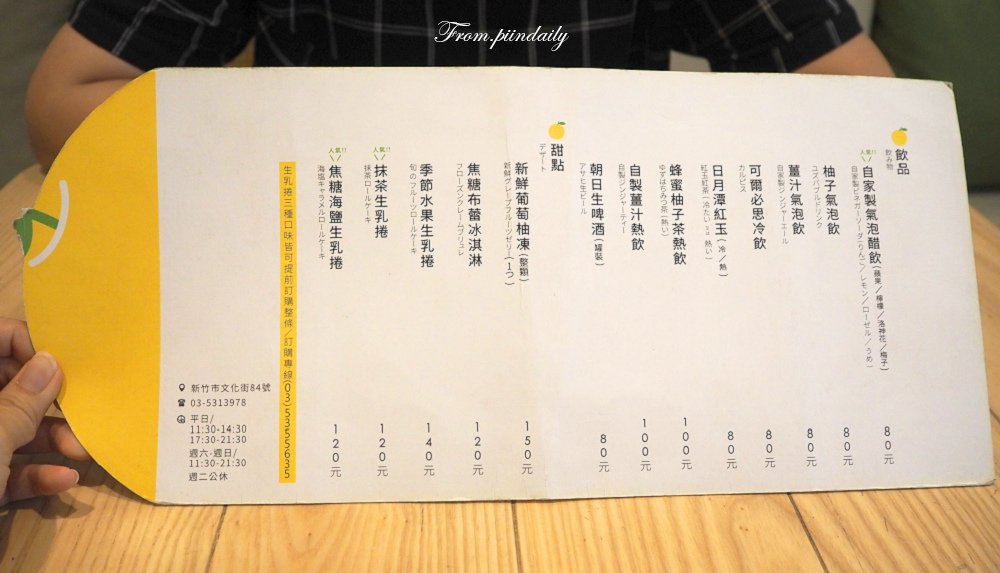 From.piindaily
飲品
飲み物
人氣!!
自家製氣泡醋飲(蘋果/檸檬/洛神花/梅子)
自家製ビネガーソーダ(りんご/レモン/ローゼル/うめ)
80元
柚子氣泡飲
ユズバブルドリンク
80元
薑汁氣泡飲
自家製ジンジャーエール
80元
可爾必思冷飲
カルピス
80元
日月潭紅玉(冷/熱)
紅玉紅茶(冷たい/熱い)
80元
蜂蜜柚子茶熱飲
ゆずはちみつ茶(熱い)
100元
自製薑汁熱飲
自製ジンジャーティー
100元
朝日生啤酒(罐裝)
アサヒ生ビール
80元
甜點
デザート
新鮮葡萄柚凍(整顆)
新鮮グレープフルーツゼリー(1つ)
150元
焦糖布蕾冰淇淋
フローズンクレームブリュレ
120元
季節水果生乳捲
旬のフルーツロールケーキ
140元
人氣!!
抹茶生乳捲
抹茶ロールケーキ
120元
人氣!!
焦糖海鹽生乳捲
海塩キャラメルロールケーキ
120元
生乳捲三種口味皆可提前訂購整條/訂購專線(03)5355635
新竹市文化街84號
03-5313978
平日/
11:30-14:30
17:30-21:30
週六.週日/
11:30-21:30
週二公休